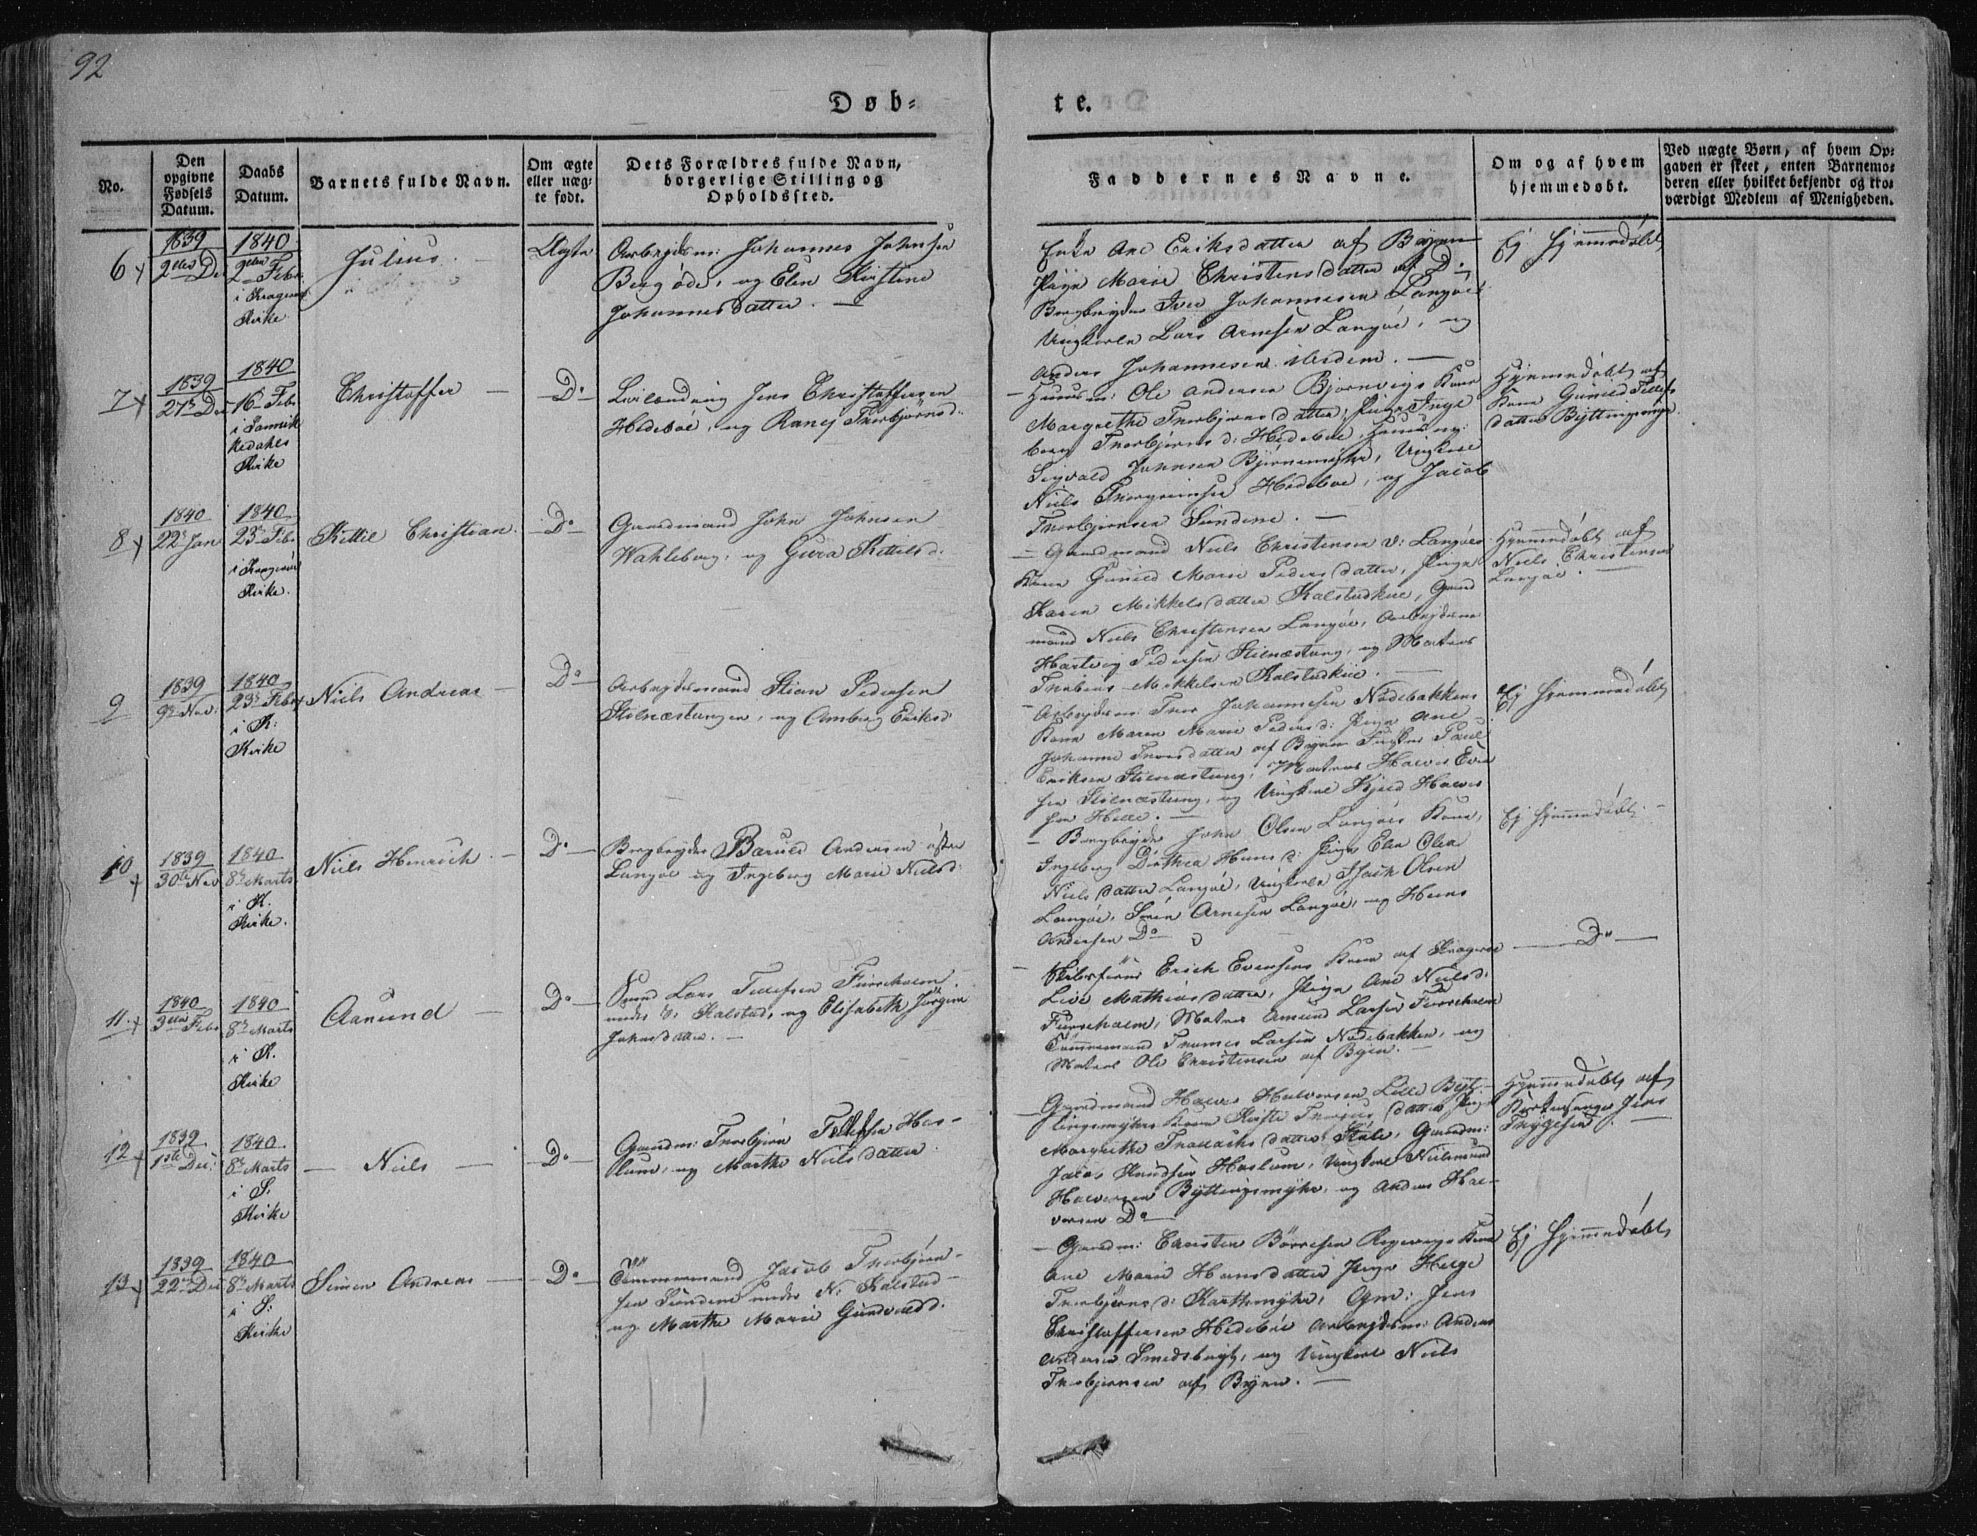 92
Døb-
te.
No.
Den
opgivne
Fødsels
Datum.
Daabs
Datum.
Barnets fulde Navn.
Om ægte
eller uæg-
te født.
Dets Forældres fulde Navn,
borgerlige Stilling og
Opholdssted.
Faddernes Navne.
Om og af hvem
hjemmedøbt.
Ved uægte Børn, af hvem Op-
gaven er skeet, enten Barnemo-
deren eller hvilket bekjendt og tro-
værdigt Medlem af Menigheden.
6
1839
2den Dec
1840
2den Febr
i Kragerøe
Kirke
Julius.
Ægte
Arbeydsm: Johannes Johnsen
Bergøde, og Elen Kirstine
Johannesdatter.
Enke Ane Eriksdatter af Byen
Pige Marie Christensdatter af Do
Iver Johannesen Langøe
Ungkarl Lars Arnesen Langøe, og
Anders Johannesen
Ej Hjemmedøbt
7
1839
27de Dec
1840
16 Feb.
i Sannik
kedahls
Kirke
Christoffer
Do
Jens Christoffersen
Hedebøe, og Ranej Thorbjørnsd.
Huusm: Ole Andersen Bjørnevigs Kone
Margrethe Thorbjørnsdatter, Pige Inge
borg Thorbjørnsd: Hedeboe, Huusm:
Sigvald Johnsen Bjørnemyhr, Ungkarl
Niels Thorgrimsen Hedeboe, og Jacob
Thorbjørnsen Sundene.
Hjemmedøbt af
Kone Gunild Tellefs
datter Byttingsmyr
8
1840
22 Jan
1840
23de Febr
i Kragerøe
Kirke.
Kittil Christian.
Do
Gaardmand John Johnsen
Wahleberg, og Gura Kittilsd.
Gaardmand Niels Christensen V: Langøes
Kone Gunild Marie Pedersdatter, Pige
Karen Mikkelsdatter Kalstadkiil, Gaard
mand Niels Christensen Langøe, Arbeydsm
Hartvig Pedersen Stilnæstang, og Matros
Thobias Mikkelsen Kalstadkiil.
Hjemmedøbt af
Niels Christensen
Langøe.
9
1839
9de Nov.
1840
23de Febr
i K:
Kirke
Niels Andreas
Do
Arbeydsmand Stian Pedersen
Stilnæstangen, og Amberg Eriksd.
Arbeydsm: Thor Johannesen Nødebakkens
Kone Maren Marie Pedersd: Pige Ane
Johanne Thorsdatter af Byen Fisker Poul
Eriksen Stilnæstang, Matros Halvor Even
sen Stilnæstang, og Ungkarl Kjeld Halvor
sen Helle.
Ej Hjemmedøbt
10
1839
30te Nov
1840
8de Marts
i K.
Kirke.
Niels Hinrich.
Do
Baruld Andersen østre
Langøe og Ingeborg Marie Nielsd.
John Olsen Langøes Kone,
Ingeborg Dorthea Hansd: Pige Elen Olea
Nielsdatter Langøe, Ungkarle Isack Olsen
Langøe, Sørin Arnesen Langøe, og Hans
Andersen Do
Ej Hjemmedøbt.
11.
1840
3die Febr
1840
8de Marts
i K.
Kirke
Aanund
Do
Lars Tellefsen Furreholm
under V: Kalstad, og Elisabeth Jørgine
Johnsdatter.
Skibsfører Erich Evensens Kone af Kragerøe
Live Mathiasdatter, Pige Ane Nielsd.
Furreholm, Matros Amund Larsen Furreholm
Tømmermand Thomas Larsen Nødebakken, og
Matros Ole Christensen af Byen.
Do
12
1839
1ste Dec.
1840
8de Marts
i S.
Kirke
Niels
Do
Gaardm: Thorbjørn Tellefsen Has-
lum, og Marthe Nielsdatter.
Gaardmand Halvor Halvorsen Lille Byt-
tingsmyhrs Kone Kirsti datter Pige
Margrethe datter Gaardm:
Jacob Knudsen Haslum, Ungkarl Nielsmund
Halvorsen Byttingsmyhr, og Anders Hal-
vorsen Do
Hjemmedøbt af
Kirkesanger Jens
13
1839
22de Dec
1840
8de Marts
i S:
Kirke
Simon Andreas
Do
Tømmermand Jacob Thorbjørn-
sen Sundene under N: Kalstad
og Marthe Marie Gundvaldsd.
Gaardm: Christen Børresen Kone
Ane Marie Hansdatter Pige Helge
Thorbjørnsd: Karthmyhr, Gm: Jens
Christoffersen Hedebøe Arbeydsm: Anders
Andersen Smedsbugt, og Ungkarl Niels
Thorbjørnsen af Byen.
Ej Hjemmedøbt